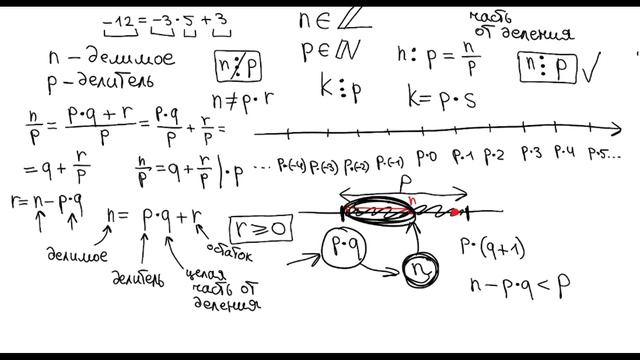 -12 = -3 · 5 + 3
n ∈ ℤ
часть от деления
n - делимое
p - делитель
n ⋮̸ p
p ∈ ℕ
n : p = n/p
n ⋮ p ✓
n ≠ p · r
k ⋮ p
k = p · s
n/p = (p · q + r)/p = (p · q)/p + r/p =
= q + r/p
n/p = q + r/p | · p
... p·(-4) p·(-3) p·(-2) p·(-1) p·0 p·1 p·2 p·3 p·4 p·5...
r = n - p · q
n = p · q + r
r ⩾ 0
p
n
делимое
делитель
целая часть от деления
остаток
p · q
n
p · (q+1)
n - p · q < p